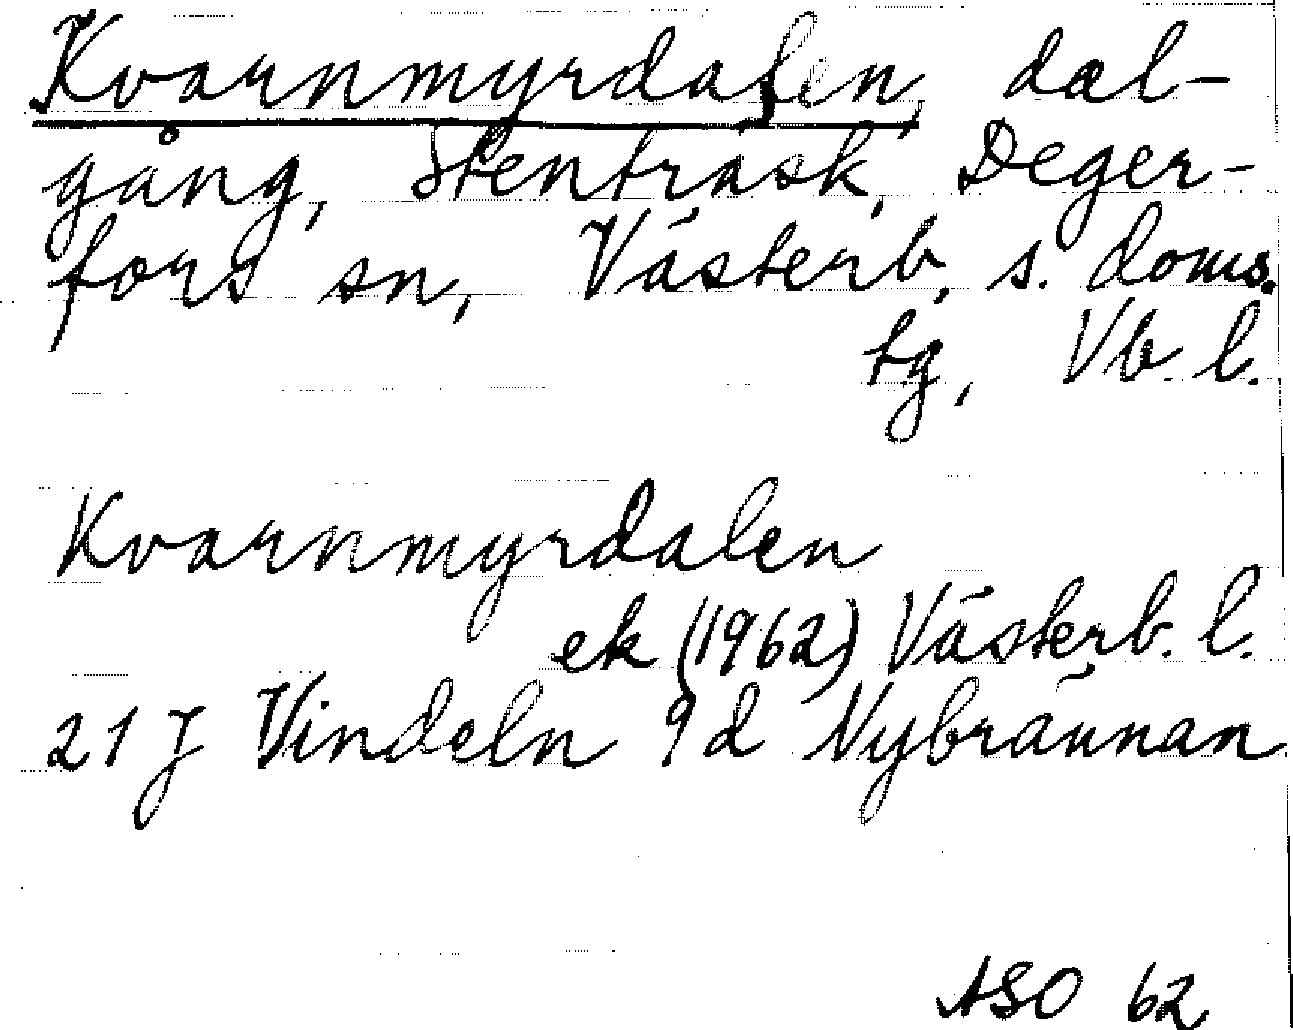 Kvarnmyrdalen, dal-
gång, Stenträsk, Deger-
fors sn, Västerb. s. doms.
tg, Vb. l.
Kvarnmyrdalen
ek (1962) Västerb. l.
21 J Vindeln 9d Nybrännan
ASO 62